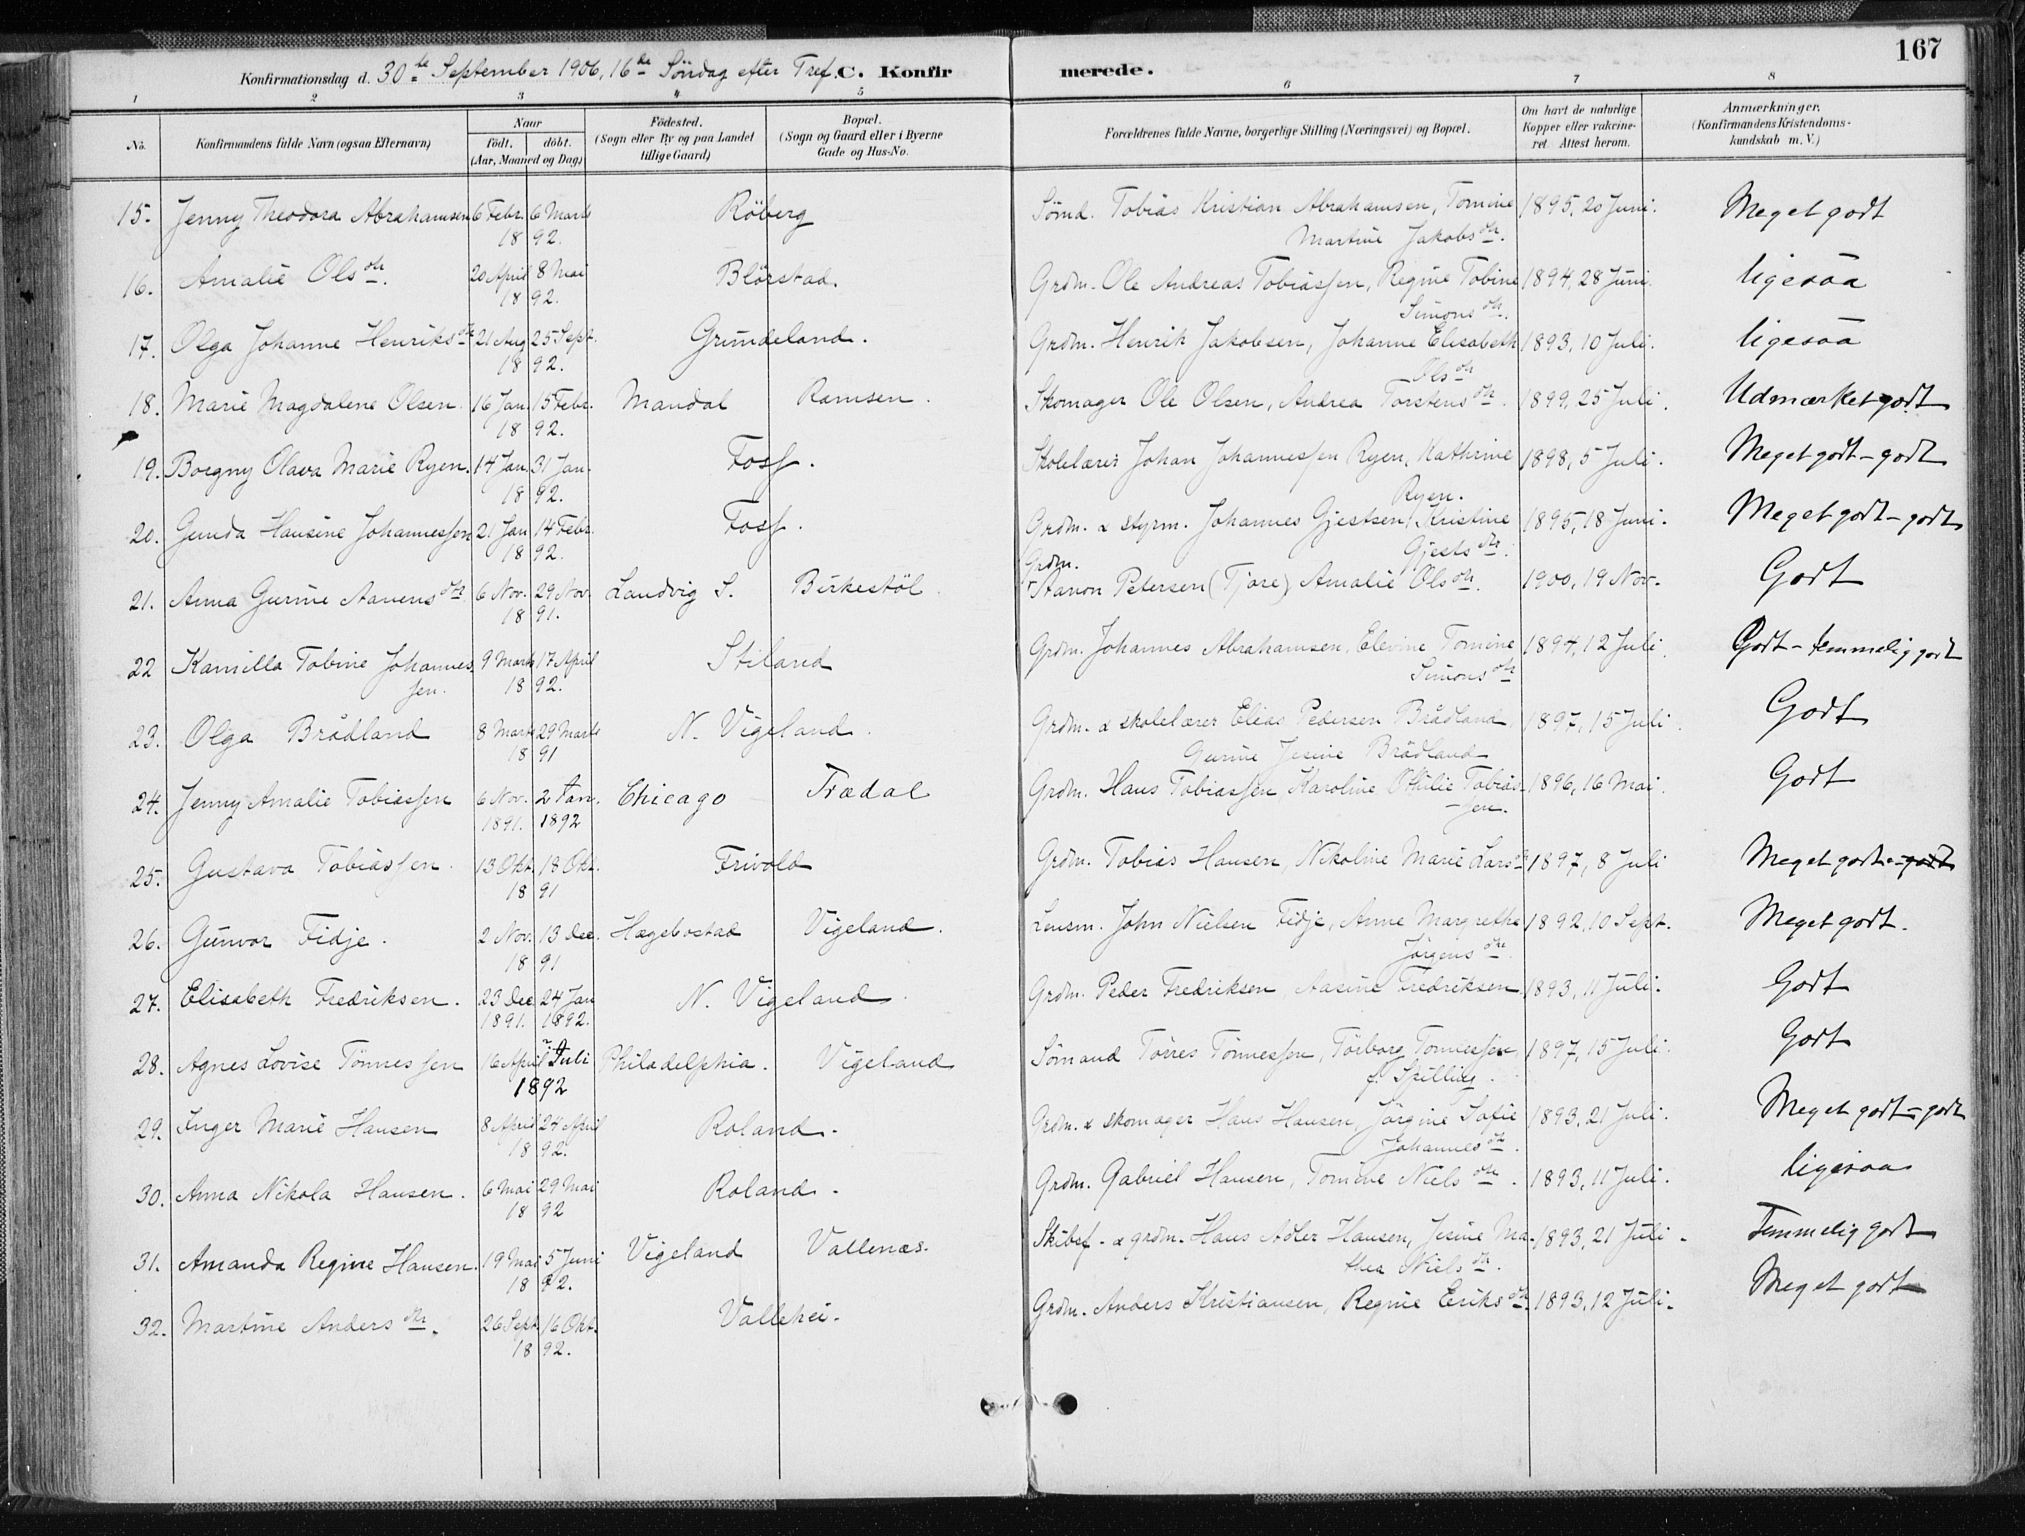 167
Konfirmationsdag d. 30te September 1906, 16de Söndag efter Tref. C. Konfirmerede.
1 2 3 4 5 6 7 8
No. Konfirmandens fulde Navn (ogsaa Efternavn) Naar födt. döbt. (Aar, Maaned og Dag) Födested. (Sogn eller By og paa Landet tillige Gaard) Bopæl. (Sogn og Gaard eller i Byerne Gade og Hus-No. Forældrenes fulde Navne, borgerlige Stilling (Næringsvei) og Bopæl. Om havt de naturlige Kopper eller vakcineret. Attest herom. Anmærkninger. (Konfirmandens Kristendomskundskab m. V.)
15. Jenny Theodora Abrahamsen 6 Febr. 6 Marts Röberg Sömd. Tobias Kristian Abrahamsen, Tomine 1895, 20 Juni. Meget godt
18 92. Martine Jakobsdtr.
16. Amalie Olsdtr. 20 April 8 Mai Blörstad. Grdm. Ole Andreas Tobiassen, Regine Tobine 1894, 28 Juni. ligesaa
18 92. Simonsdtr.
17. Olga Johanne Henriksdtr 21 Aug 25 Sept. Grundeland. Grdm. Henrik Jakobsen, Johanne Elisabeth 1893, 10 Juli. ligesaa
18 92. Olsdtr
18. Marie Magdalene Olsen. 16 Jan. 15 Febr. Mandal Ramsen. Skomager Ole Olsen, Andrea Torstensdtr. 1899, 25 Juli. Udmærket godt
18 92.
19. Borgny Olava Marie Ryen. 14 Jan. 31 Jan. Foss. Skolelærer Johan Johannessen Ryen, Kathrine 1898, 5 Juli. Meget godt - godt
18 92. Ryen.
20. Gunda Hansine Johannessen 21 Jan 14 Febr. Foss. Grdm. & styrm. Johannes Gjestsen, Kristine 1895, 18 Juni. Meget godt - godt
18 92. Gjestsdtr.
Grdm.
21. Anna Gurine Aanensdtr 6 Nov. 29 Nov. Landvig S. Birkestöl. Aanon Petersen (Tjore) Amalie Olsdtr. 1900, 19 Nov. Godt
18 91.
22 Kamilla Tobine Johannes- 9 Marts 17 April Stiland Grdm. Johannes Abrahamsen, Elevine Tomine 1894, 12 Juli. Godt - temmelig godt
sen. 18 92. Simonsdtr
23. Olga Brådland 8 Marts 29 Marts N. Vigeland. Grdm. & skolelærer Elias Pedersen Brådland 1897, 15 Juli. Godt
18 91 Gurine Jesine Brådland
24. Jenny Amalie Tobiassen 6 Nov. 2 Jan. Chicago Trædal Grdm. Hans Tobiassen Karoline Othilie Tobias- 1896, 16 Mai. Godt
1891. 1892 sen.
25. Gustava Tobiassen. 13 Okt. 18 Okt. Frivold Grdm. Tobias Hansen, Nikoline Marie Larsdtr 1897, 8 Juli Meget godt - godt
18 91
26. Gunvor Fidje. 2 Nov. 13 Dec. Hægebostad Vigeland. Lensm. John Nielsen Fidje, Anne Margrethe 1892, 10 Sept. Meget godt.
18 91 Jörgensdtr
27. Elisabeth Fredriksen. 23 Dec. 24 Jan N. Vigeland. Grdm. Peder Fredriksen Aasine Fredriksen 1893, 11 Juli. Godt
1891. 1892.
28. Agnes Lovise Tönnessen 16 April Juli Philadelphia. Vigeland Sömand Torres Tönnessen, Torborg Tönnessen, 1897, 15 Juli. Godt
1892 f. Spilling.
29. Inger Marie Hansen 8 April 24 April Roland. Grdm. & skomager Hans Hansen, Jörgine Sofie 1893, 21 Juli. Meget godt - godt
18 92. Johannesdtr.
30. Anna Nikola Hansen. 6 Mai 29 Mai Roland. Grdm. Gabriel Hansen, Tomine Nielsdtr. 1893, 11 Juli. ligesaa
18 92
31. Amanda Regine Hansen. 19 Mai 5 Juni Vigeland Vallenæs. Skibsf. & grdm. Hans Adler Hansen, Jesine Ma- 1893, 21 Juli. Temmelig godt
18 92. thea Nielsdtr.
32. Martine Andersdtr. 26 Sept. 16 Okt. Vallehei. Grdm. Anders Kristiansen, Regine Eriksdtr. 1893, 12 Juli. Meget godt
18 92.